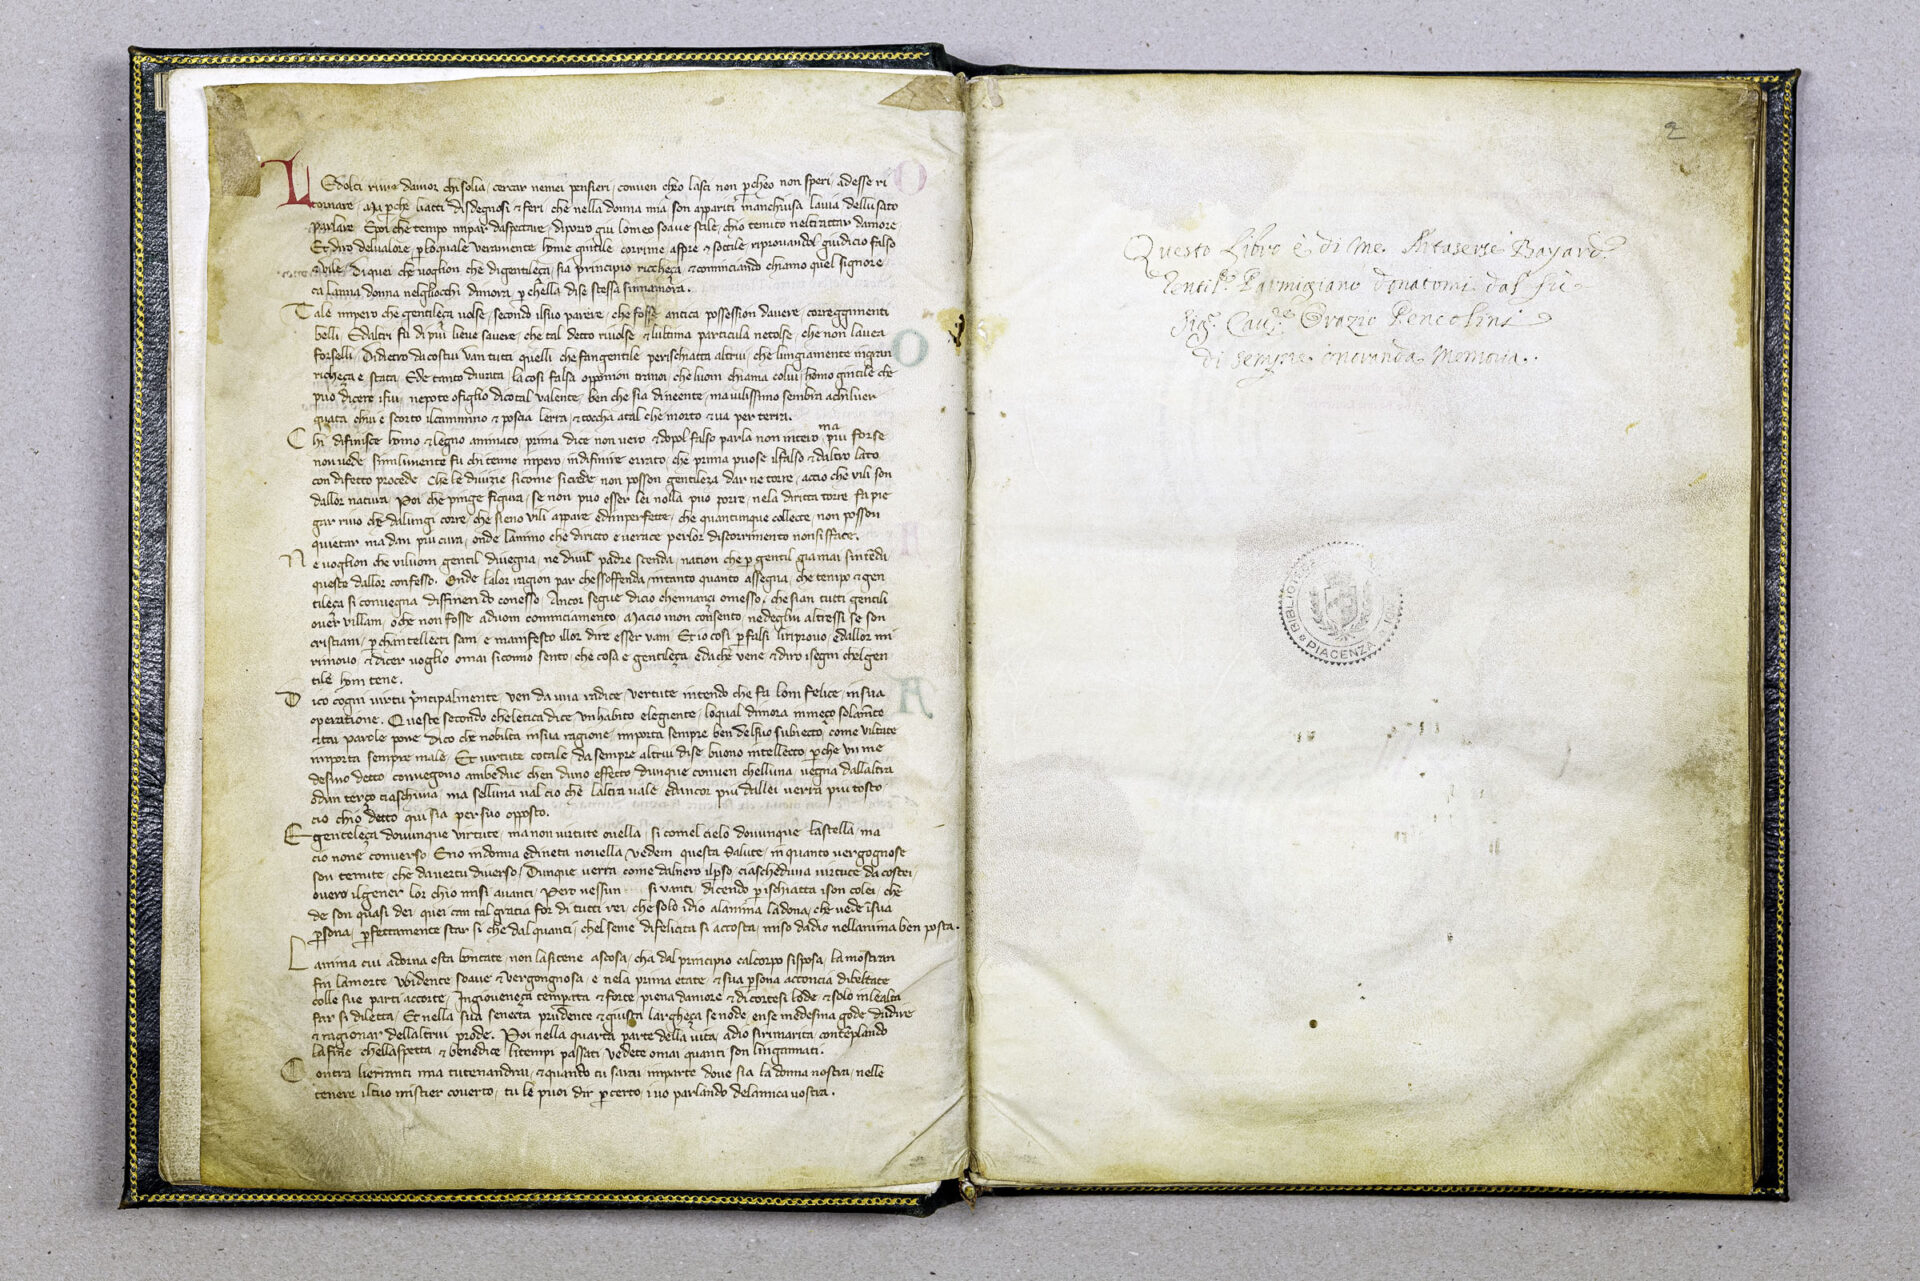 LEdolci rime damor chi solia, cercar nemei pensieri, conven cheo lasci non perche o non speri, adesse ri
tornare, Ma perche liatti disdegnosi et feri che nella donna mia son appariti manchiusa lavia dellusato
parlare Epoi che tempo mipar daspectare, diporro giu lomeo soave stile, chio tenuto neltrattar damore,
Et diro delvalore, per loquale veramente homo gentile, con rima aspre et sottile riprovandol giudicio falso
et vile, di quei che voglion che di gentileça, sia principio richeça, et cominciando chiamo quel signore
ca lamia donna negliocchi dimora, per chella dise stessa sinnamora.
Tale impero che gentileça volse, secondo il suo parere, che fosse antica possession davere, con reggimenti
belli Edaltri fu di piu lieve savere, che tal detto rivolse et lultima particula ne tolse, che non lavea
forselli, Didietro dacostui van tutti quelli che fan gentile per ischiatta altrui, che lungiamente in gran
richeça e stata, Ede tanto durata, la cosi falsa oppinion tra noi, che luom chiama colui, homo gentile che
puo dicere i fui, nepote o figlio dicotal valente, ben che sia da neente, ma vilissimo sembra achi lver
guata chui e scorto il cammino et poscia lerra, et toccha a tal che morto et va per terra.
Chi difinisce homo et legno animato, prima dice non vero et dopol falso parla non intero, ma piu forse
non vede Similimente fu chi tenne impero, in difinire errato, che prima puose il falso et daltro lato
con difetto procede Che le divizie sicome si crede non posson gentileza dar ne torre, accio che vili son
dallor natura Poi che pinge figura, se non puo esser lei nolla puo porre, nela diritta torre fa pie
gar rivo che dalungi corre, che sieno vili appare edimperfette, che quantunque collecte, non posson
quietar ma dan piu cura, onde lanimo che diricto e verace perlor discorrimento non si sface.
Ne voglion che viluom gentil divegna, ne divil padre scenda, nation che per gentil giamai sintenda
questo dallor confesso. Onde lalor ragion par chessoffenda, intanto quanto assegna, che tempo et gen
tileça si convegna diffinendo conesso, Ancor segue dicio chennançi o messo, che sian tutti gentili
over villani, o che non fosse aduom cominciamento, Ma cio inon consento, nedeglin altressi se son
cristiani, per chantellecti sani e manifesto illor dire esser vani Et io cosi per falsi li riprovo, e dallor mi
rimovo, et dicer voglio omai siconio sento, che cosa e gentileça, eda che vene, et diro isegni chel gen
tile hom tene.
Dico cogni virtu principalmente ven da una radice, vertute intendo che fa lom felice, in sua
operatione, Questo secondo che letica dice, un habito elegiente, loqual dimora in meço solamente
et tai parole pone Dico che nobilta in sua ragione, importa sempre ben del suo subiecto, come viltate
importa sempre male, Et virtute cotale, da sempre altrui dise buono intellecto, perche un me
desimo detto convegono ambedue chen duno effecto dunque conven chelluna, vegna dallaltra
odun terço ciaschuna ma selluna val cio che laltra vale edancor piu dallei verra piu tosto
cio chio detto qui sia per suo opposto.
E gentileça dovunque virtute, ma non virtute ovella, si comel cielo dovunque lastella, ma
cio none converso Eno in donna ed in eta novella Vedem questa Salute, in quanto vergognose
son tenute, che da vertu diverso, Dunque verra come dalnero il perso, ciascheduna virtute da costei,
overo il gener lor chio misi avanti, Pero nessun si vanti, dicendo per ischiatta i son colei, che
de son quasi dei, quei can tal gratia for di tutti rei, che solo idio alanima ladona, che vede in sua
persona, perfettamente star si che dal quanti, chel seme difelicita si accosta, miso dadio nellanima ben posta.
Lanima cui adorna esta bontate, non lasitene ascosa, cha dal principio calcorpo sisposa, la mostra in
fin la morte Ubidente soave et vergongnosa, e nela prima etate, et sua persona acconcia dibeltate
colle sue parti accorte, In gioveneça temperata et forte, piena damore et di cortesi lode, et solo in lealta
far si diletta, Et nella sua senecta prudente et giusta largheça se node, en se medesma gode dudire
et ragionar dellaltrui prode. Poi nella quarta parte della vita, adio si rimarita contemplando
la fine chellaspetta, et benedice li tempi passati, vedete omai quanti son lingannati.
Contra lierranti mia tu tenandrai, et quando tu sarai in parte dove sia la donna nostra, nelle
tenere il tuo mistier coverto, tu le puoi dir per certo, i vo parlando delamica vostra.
2
Questo Libro è di Me. Artaserse Bayard.
Gentil.º Parmigiano donatomi dal fù
Sig.r Cav.re Orazio Pencolini
di sempre onoranda Memoria.
BIBLIOTECA
PIACENZA